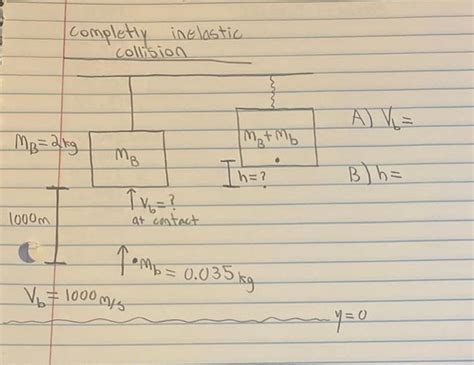 completly inelastic
collision
m_B = 2kg
m_B
m_B + m_b
A) V_b =
h = ?
B) h =
↑ V_b = ?
at contact
1000m
↑ • m_b = 0.035 kg
V_b = 1000 m/s
y = 0